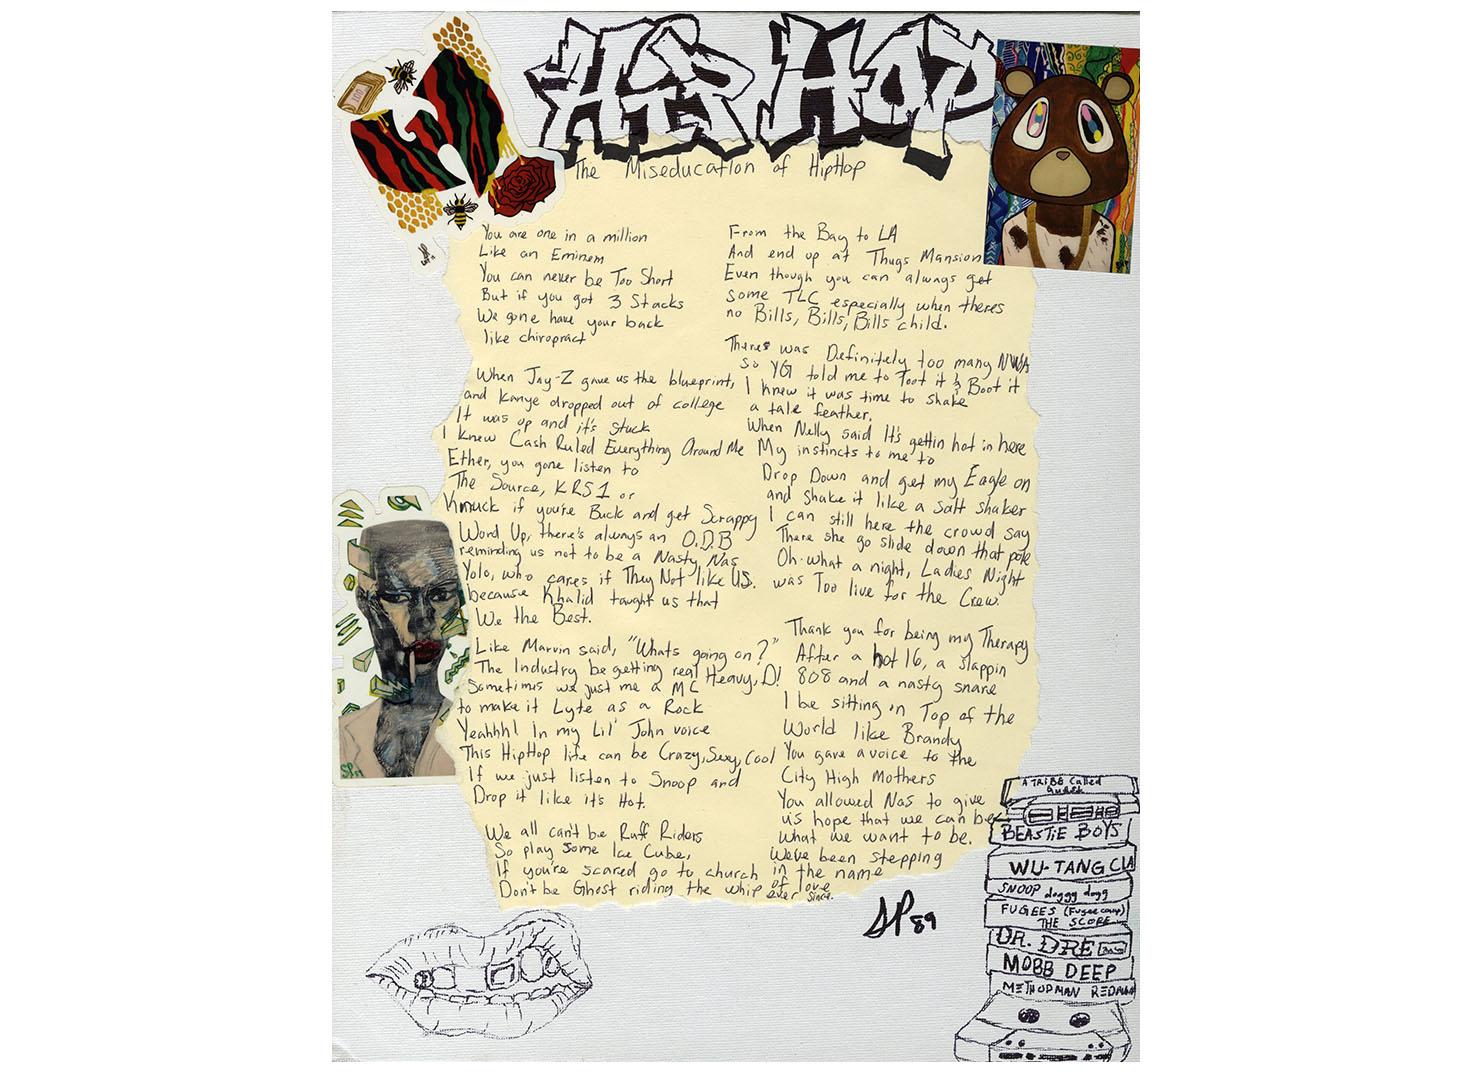 HIP HOP
The Miseducation of HipHop
You are one in a million
Like an Eminem
You can never be Too Short
But if you got 3 Stacks
We gone have your back
like chiropract
When Jay-Z gave us the blueprint,
and Kanye dropped out of college
It was up and it's stuck
I knew Cash Ruled Everything Around Me
Ether, you gone listen to
The Source, KRS1 or
Knuck if you're Buck and get Scrappy
Word Up, there's always an O.D.B
reminding us not to be a Nasty Nas
Yolo, who cares if They Not like US.
because Khalid taught us that
We the Best.
Like Marvin said, "Whats going on?"
The Industry be getting real Heavy, D!
Sometimes we just me a MC
to make it Lyte as a Rock
Yeahhh! In my Lil' John voice
This HipHop life can be Crazy, Sexy, Cool
If we just listen to Snoop and
Drop it like it's Hot.
We all can't be Ruff Riders
So play some Ice Cube,
If you're scared go to church
Don't be Ghost riding the whip
From the Bay to LA
And end up at Thugs Mansion
Even though you can always get
some TLC especially when theres
no Bills, Bills, Bills child.
There's was Definitely too many NWA
so YG told me to Toot it & Boot it
I knew it was time to shake
a tale feather.
When Nelly said It's gettin hot in here
My instincts to me to
Drop Down and get my Eagle on
and shake it like a salt shaker
I can still here the crowd say
There she go slide down that pole
Oh what a night, Ladies Night
was Too live for the Crew.
Thank you for being my Therapy
After a hot 16, a slappin
808 and a nasty snare
I be sitting on Top of the
World like Brandy
You gave a voice to the
City High Mothers
You allowed Nas to give
us hope that we can be
what we want to be.
We've been stepping
in the name
of love
ever since.
SP 89
100
SP
A TRIBE Called
Quest
BEASTIE BOYS
WU-TANG CLA
SNOOP doggy dogg
FUGEES (Fugee camp)
THE SCORE
DR. DRE
MOBB DEEP
METHODMAN REDMAN